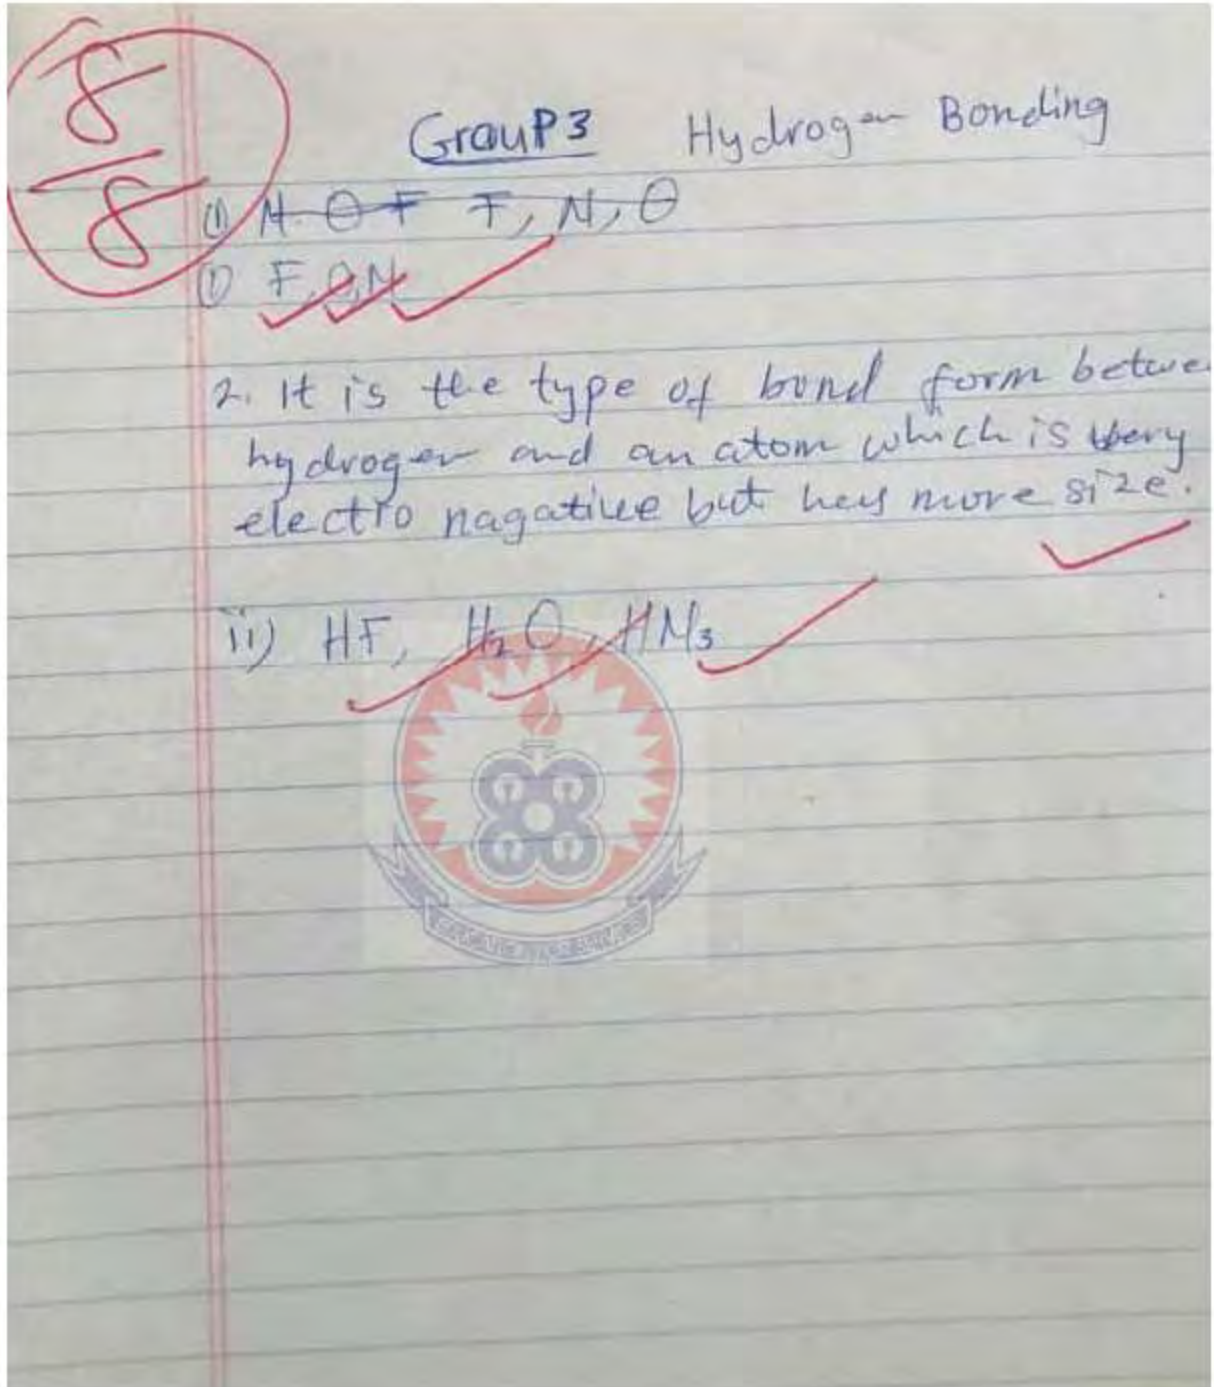 8
8
GrouP 3 Hydrogen Bonding
(1) N O F F, N, O
(1) F, O, N
2. It is the type of bond form betwe
hydrogen and an atom which is very
electro nagative but has more size.
ii) HF, H₂O, HN₃